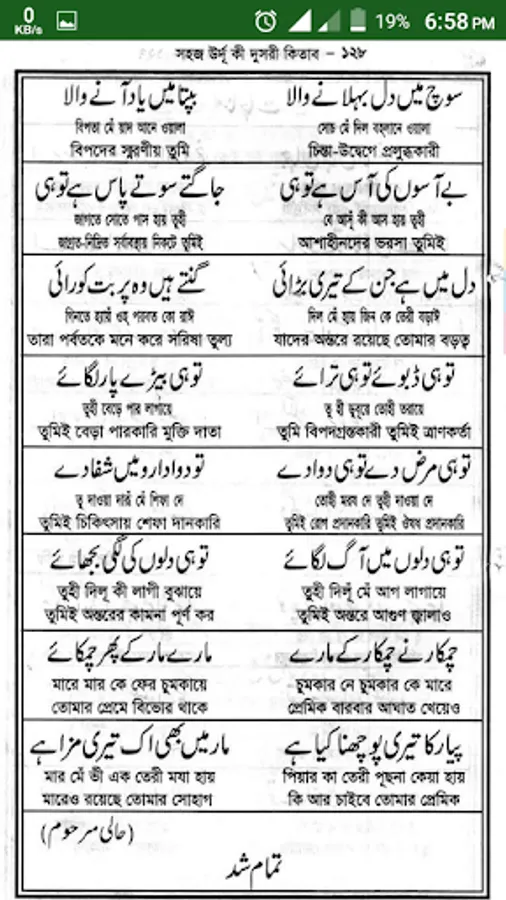 0 KB/s 19% 6:58 PM
সহজ উর্দূ কী দুসরী কিতাব - ১২৮
سوچ میں دل بہلانے والا بپتا میں یاد آنے والا
সোচ মেঁ দিল বহলানে ওয়ালা বিপতা মেঁ য়াদ আনে ওয়ালা
চিন্তা-উদ্বেগে প্রলুব্ধকারী বিপদের স্মরণীয় তুমি
بے آسوں کی آس ہے تو ہی جاگتے سوتے پاس ہے تو ہی
বে আসুঁ কী আস হায় তুহী জাগতে সোতে পাস হায় তুহী
আশাহীনদের ভরসা তুমিই জাগ্রত-নিদ্রিত সর্বাবস্থায় নিকটে তুমিই
دل میں ہے جن کے تیری بڑائی گنتے ہیں وہ پربت کو رائی
দিল মেঁ হায় জিন কে তেরী বড়াই গিনতে হ্যায়ঁ ওহ্ পরবত কো রাঈ
যাদের অন্তরে রয়েছে তোমার বড়ত্ব তারা পর্বতকে মনে করে সরিষা তুল্য
تو ہی ڈبوئے تو ہی ترائے تو ہی بیڑے پار لگائے
তূ হী ডুবূরে তোহী তরায়ে তুহী বেড়ে পার লাগায়ে
তুমি বিপদগ্রস্তকারী তুমিই ত্রাণকর্তা তুমিই বেড়া পারকারি মুক্তি দাতা
تو ہی مرض دے تو ہی دوا دے تو دوا دارو میں شفا دے
তোহী মরয দে তুহী দাওয়া দে তূ দাওয়া দারূ মেঁ শিফা দে
তুমিই রোগ প্রদানকারি তুমিই ঔষধ প্রদানকারি তুমিই চিকিৎসায় শেফা দানকারি
تو ہی دلوں میں آگ لگائے تو ہی دلوں کی لگی بجھائے
তুহী দিলূঁ মেঁ আগ লাগায়ে তুহী দিলূঁ কী লাগী বুঝায়ে
তুমিই অন্তরে আগুণ জ্বালাও তুমিই অন্তরের কামনা পূর্ণ কর
چمکار نے چمکار کے مارے مارے مار کے پھر چمکائے
চুমকার নে চুমকার কে মারে মারে মার কে ফের চুমকায়ে
প্রেমিক বারবার আঘাত খেয়েও তোমার প্রেমে বিভোর থাকে
پیار کا تیری پوچھنا کیا ہے مار میں بھی اک تیری مزا ہے
পিয়ার কা তেরী পূছনা কেয়া হায় মার মেঁ ভী এক তেরী মযা হায়
কি আর চাইবে তোমার প্রেমিক মারেও রয়েছে তোমার সোহাগ
(حالی مرحوم)
تمام شد